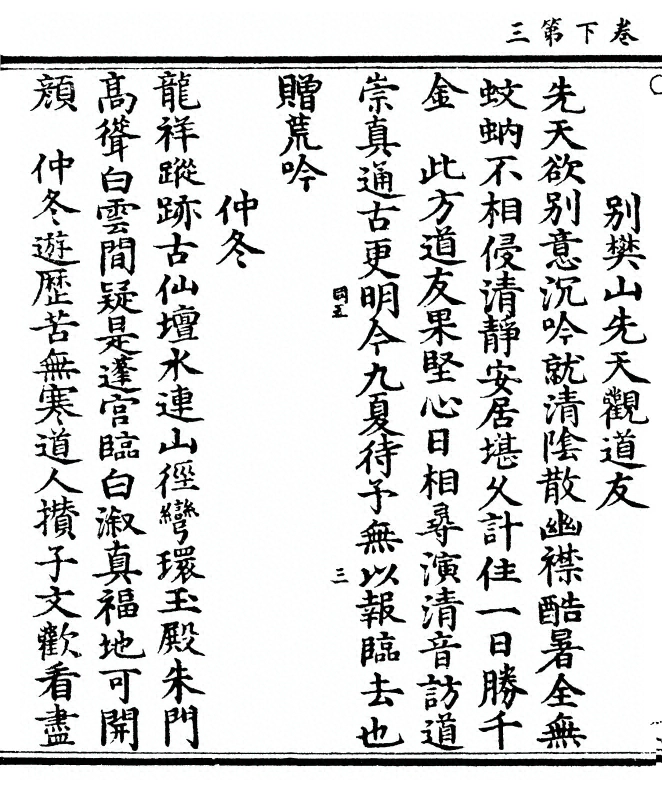 卷下第三
別樊山先天觀道友
先天欲别意沉吟就清陰散幽襟酷暑全無
蚊蚋不相侵清靜安居堪久計住一日勝千
金　此方道友果堅心日相尋演清音訪道
崇真通古更明今九夏待予無以報臨去也
同五　三
贈荒吟
仲冬
龍祥蹤跡古仙壇水連山徑彎環玉殿朱門
高聳白雲間疑是蓬宮臨白淑真福地可開
顔　仲冬遊歷苦無寒道人攢子文歡看盡